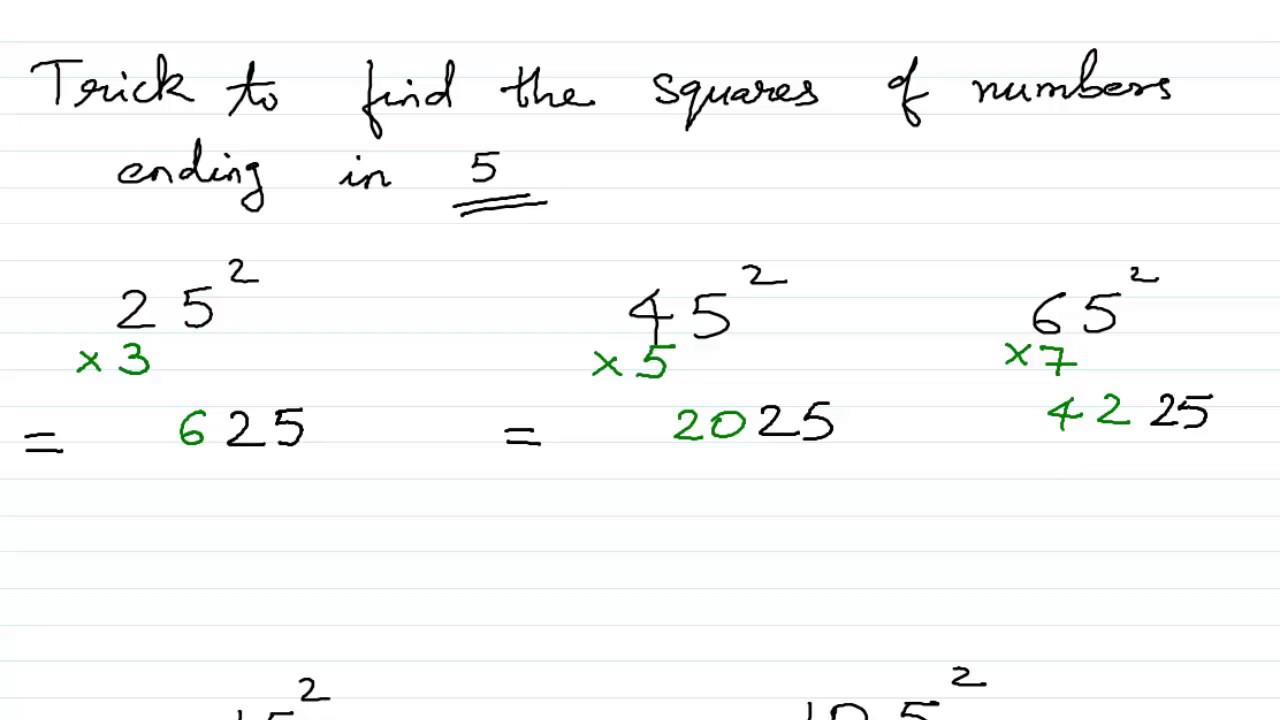 Trick to find the squares of numbers
ending in 5
25² 45² 65²
×3 ×5 ×7
= 625 = 2025 4225
15² 105²